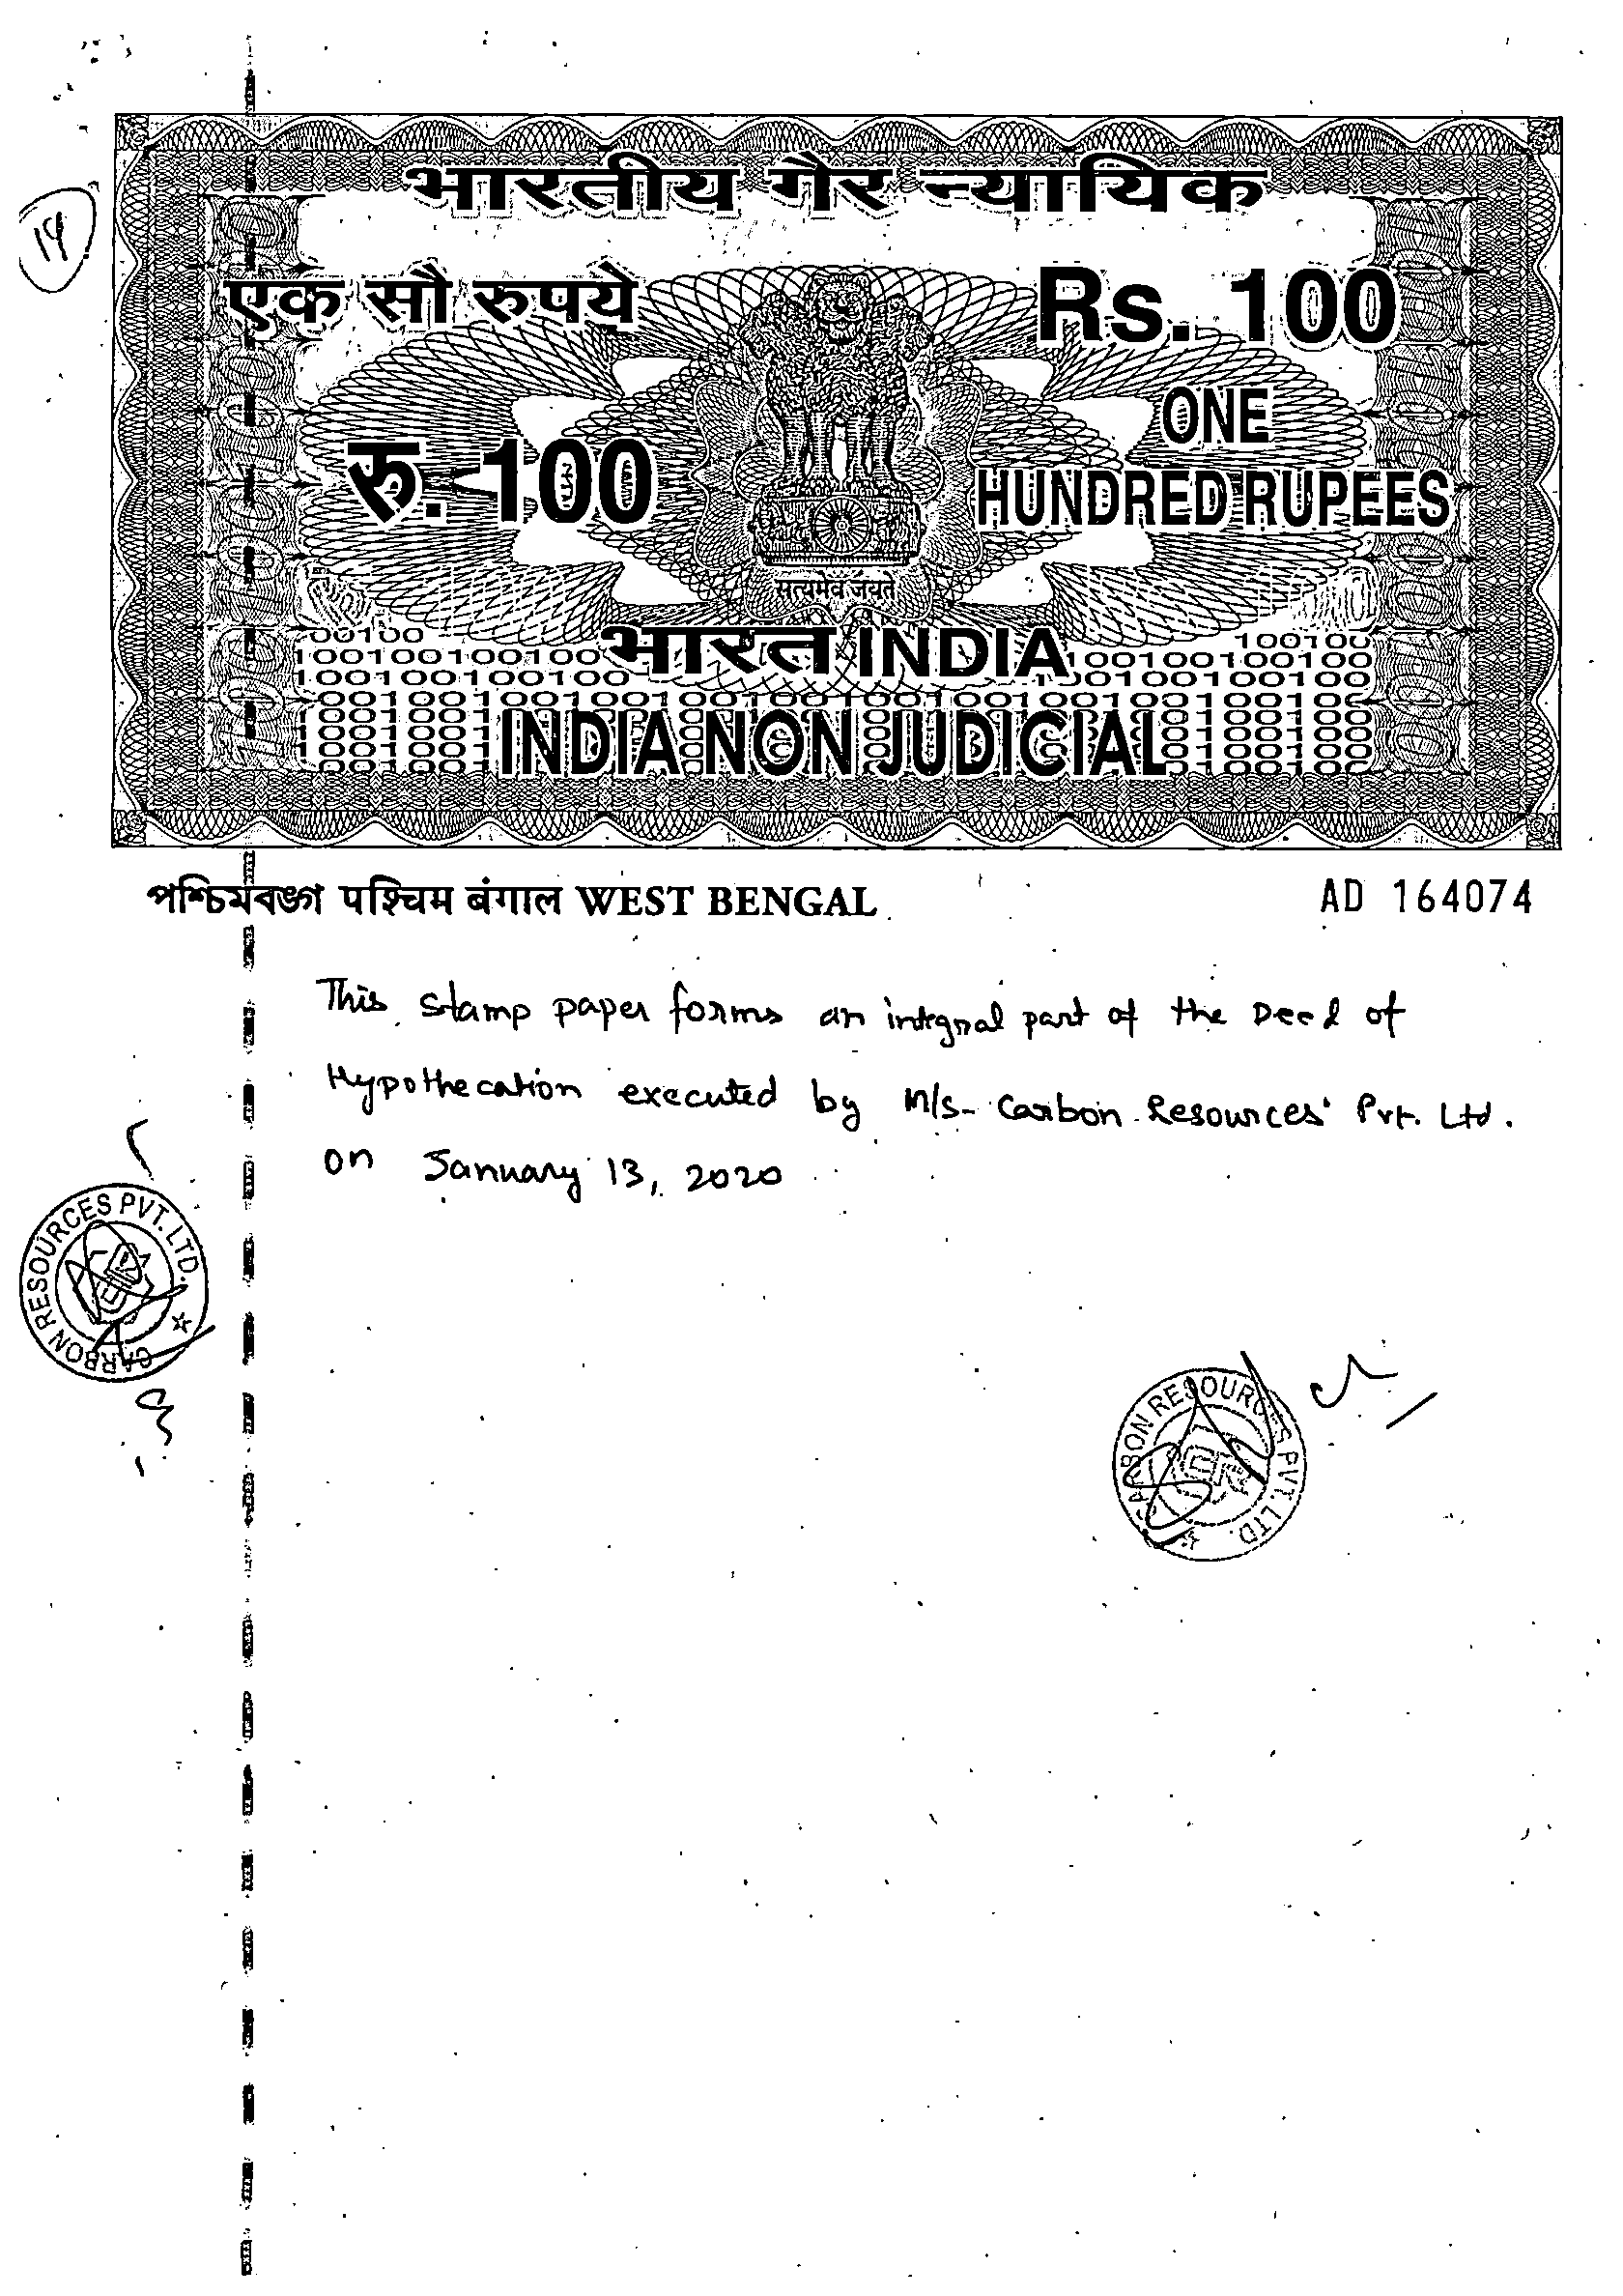 भारतीय गैर न्यायिक
एक सौ रुपये
Rs. 100
रु. 100
ONE
HUNDRED RUPEES
सत्यमेव जयते
भारत INDIA
INDIA NON JUDICIAL
পশ্চিমবঙ্গ पश्चिम बंगाल WEST BENGAL
AD 164074
This stamp paper forms an integral part of the Deed of
Hypothecation executed by M/s- Carbon Resources Pvt. Ltd.
on January 13, 2020
CARBON RESOURCES PVT. LTD.
CARBON RESOURCES PVT. LTD.